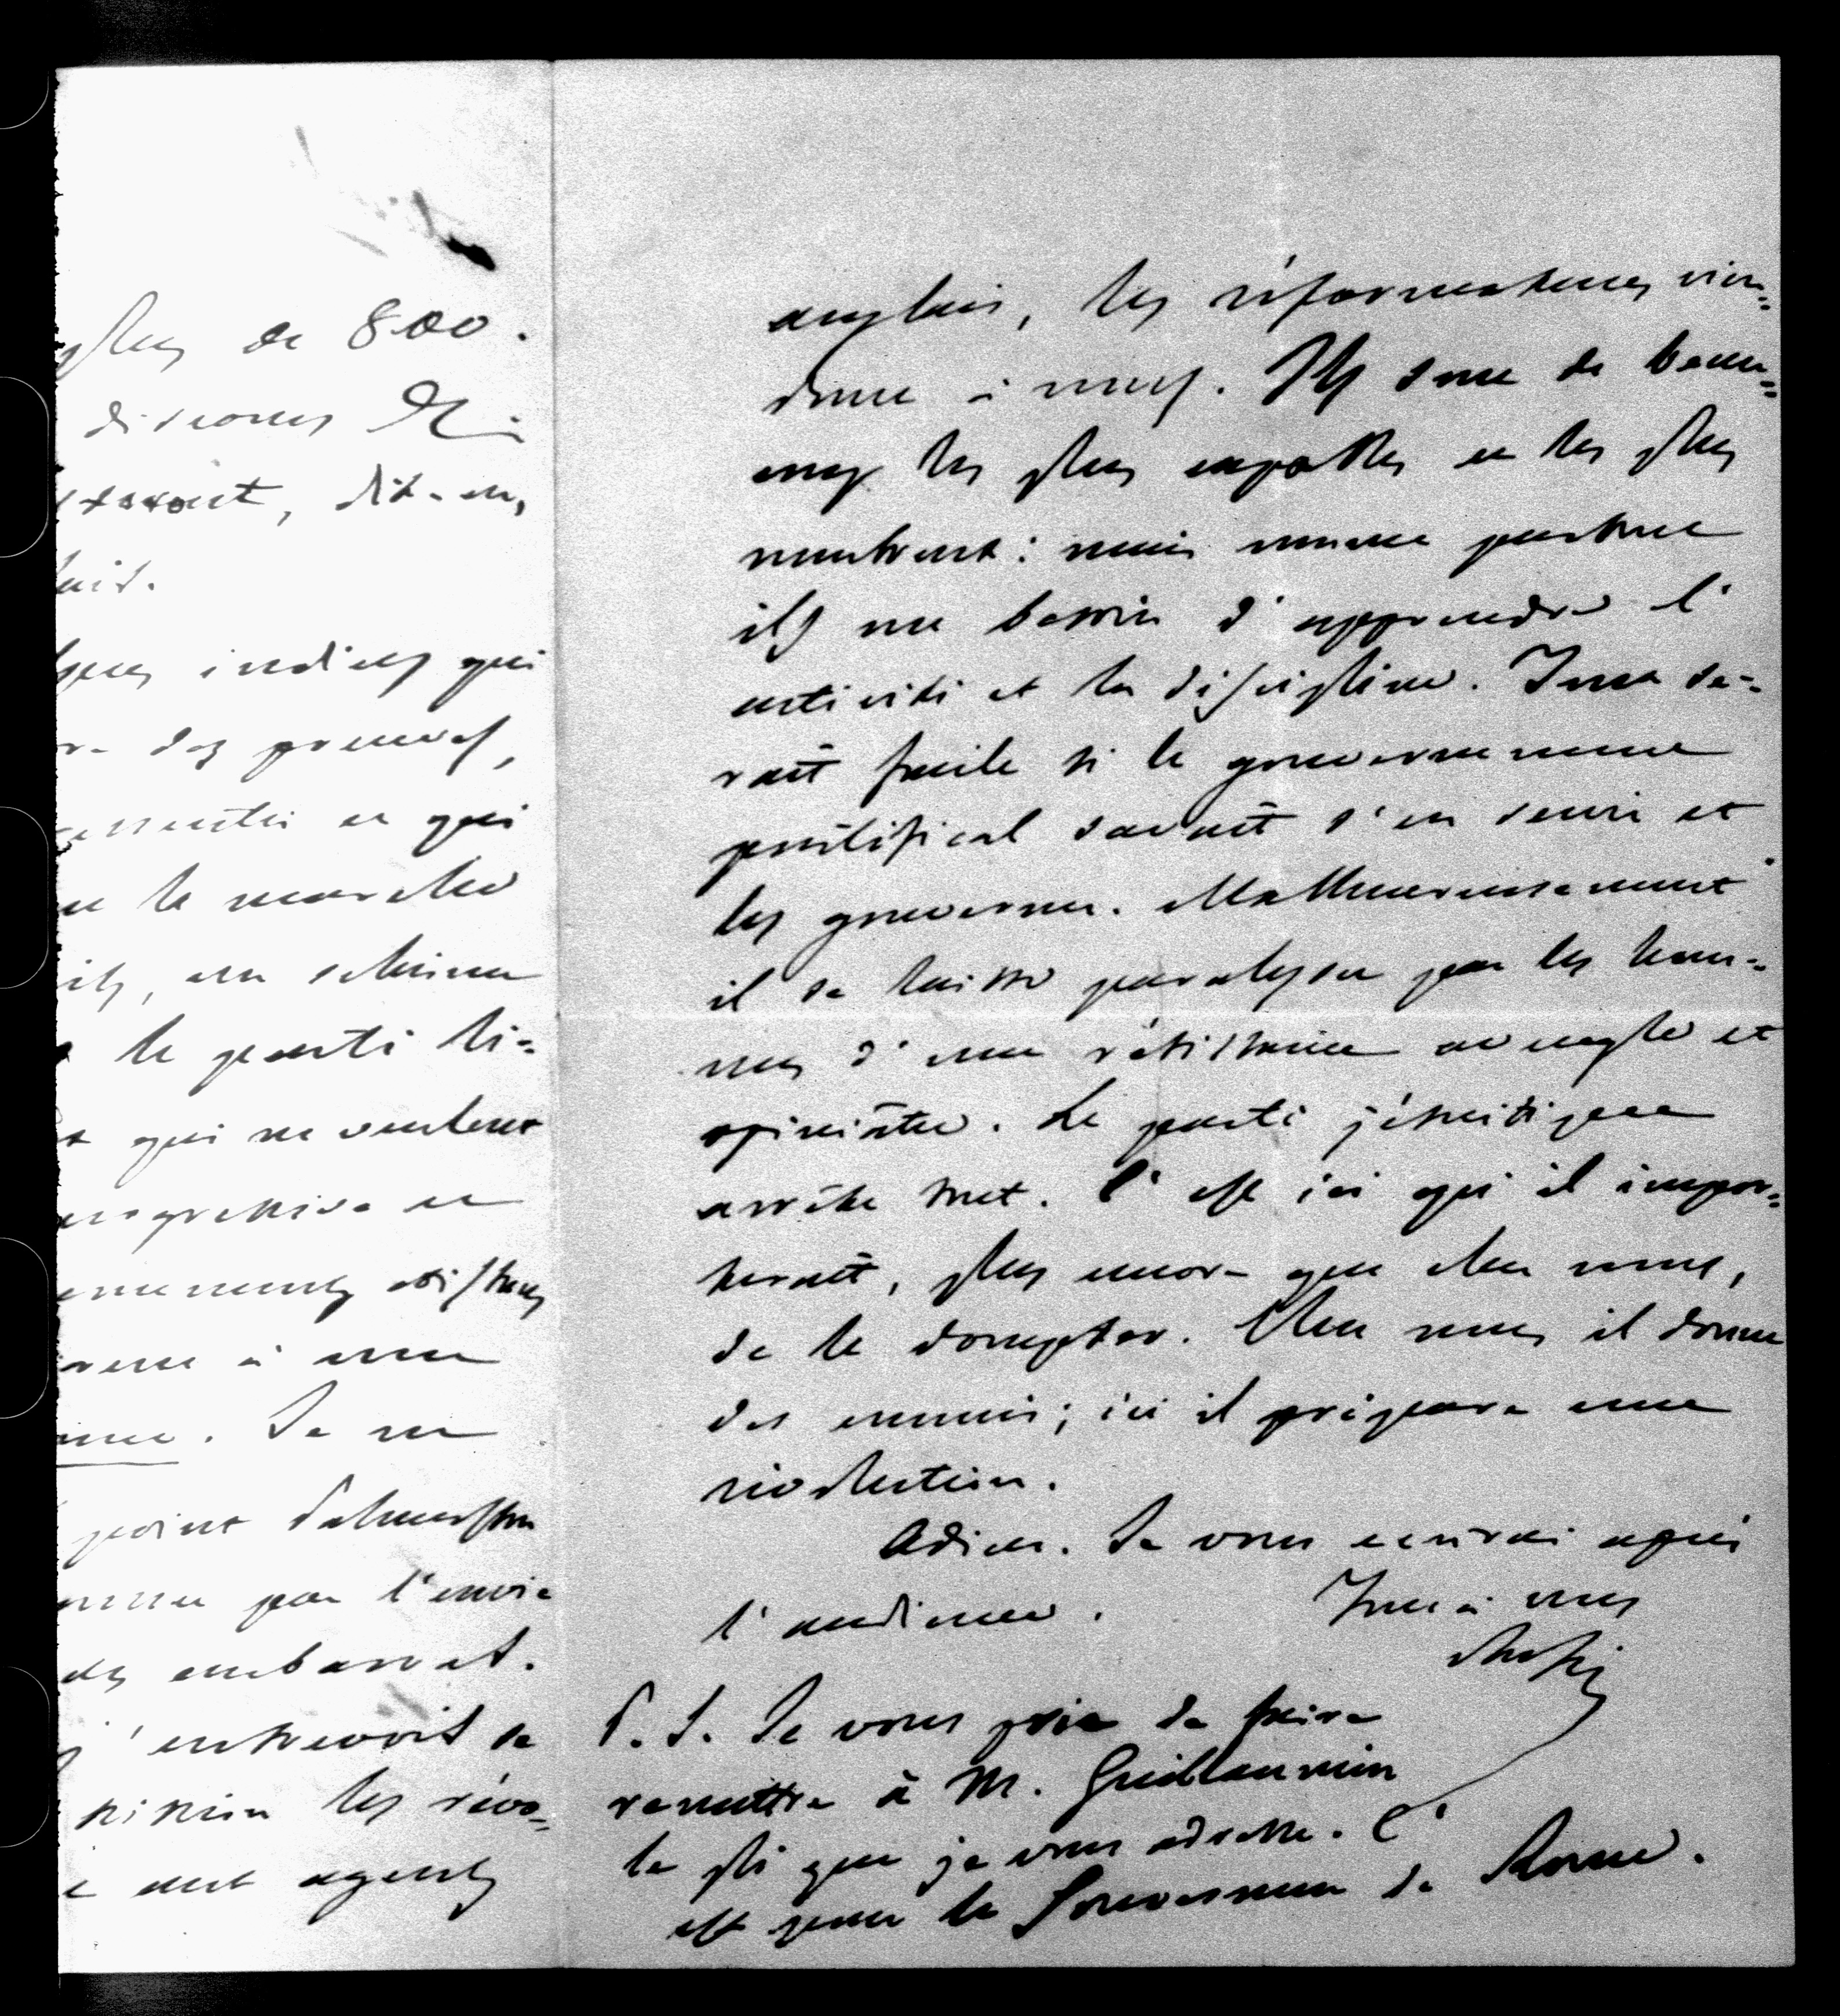 plus de 800.
discours &
étaient, dit-on,
indices qui
des preuves,
et qui
le marche
, au schisme
le parti li-
qui ne veulent
progressive et
existans
à une
. Je ne
point Palmerston
par l'envie
embarras.
j'entrevois de
les révo-
agents
anglais, les réformateurs vien-
dront à nous. Ils sont de beau-
coup les plus capables et les plus
nombreux : mais comme partout
ils ont besoin d'apprendre l'
activité et la discipline. Tout se-
rait facile si le gouvernement
pontifical savait s'en servir et
les gouverner. Malheureusement
il se laisse paralyser par les hom-
mes d'une résistance aveugle et
opiniâtre. Le parti jésuitique
arrête tout. C'est ici qu'il impor-
terait, plus encore que chez nous,
de le dompter. Chez nous il donne
des ennuis ; ici il prépare une
révolution.
Adieu. Je vous écrirai après
l'audience. Tout à vous
Rossi
P. S. Je vous prie de faire
remettre à M. Guillaumin
le pli que je vous adresse. C'
est pour le Gouverneur de Rome.